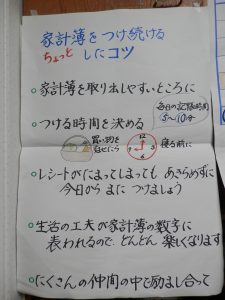 家計簿をつけ続ける
ちょっとしたコツ
○家計簿を取り出しやすいところに
毎日の記録時間
5〜10分
○つける時間を決める
買い物を
寝る前に
○レシートがたまってしまっても あきらめずに
今日から またつけましょう
○生活の工夫が家計簿の数字に
表われるので、どんどん 楽しくなります
○たくさんの仲間の中で励まし合って